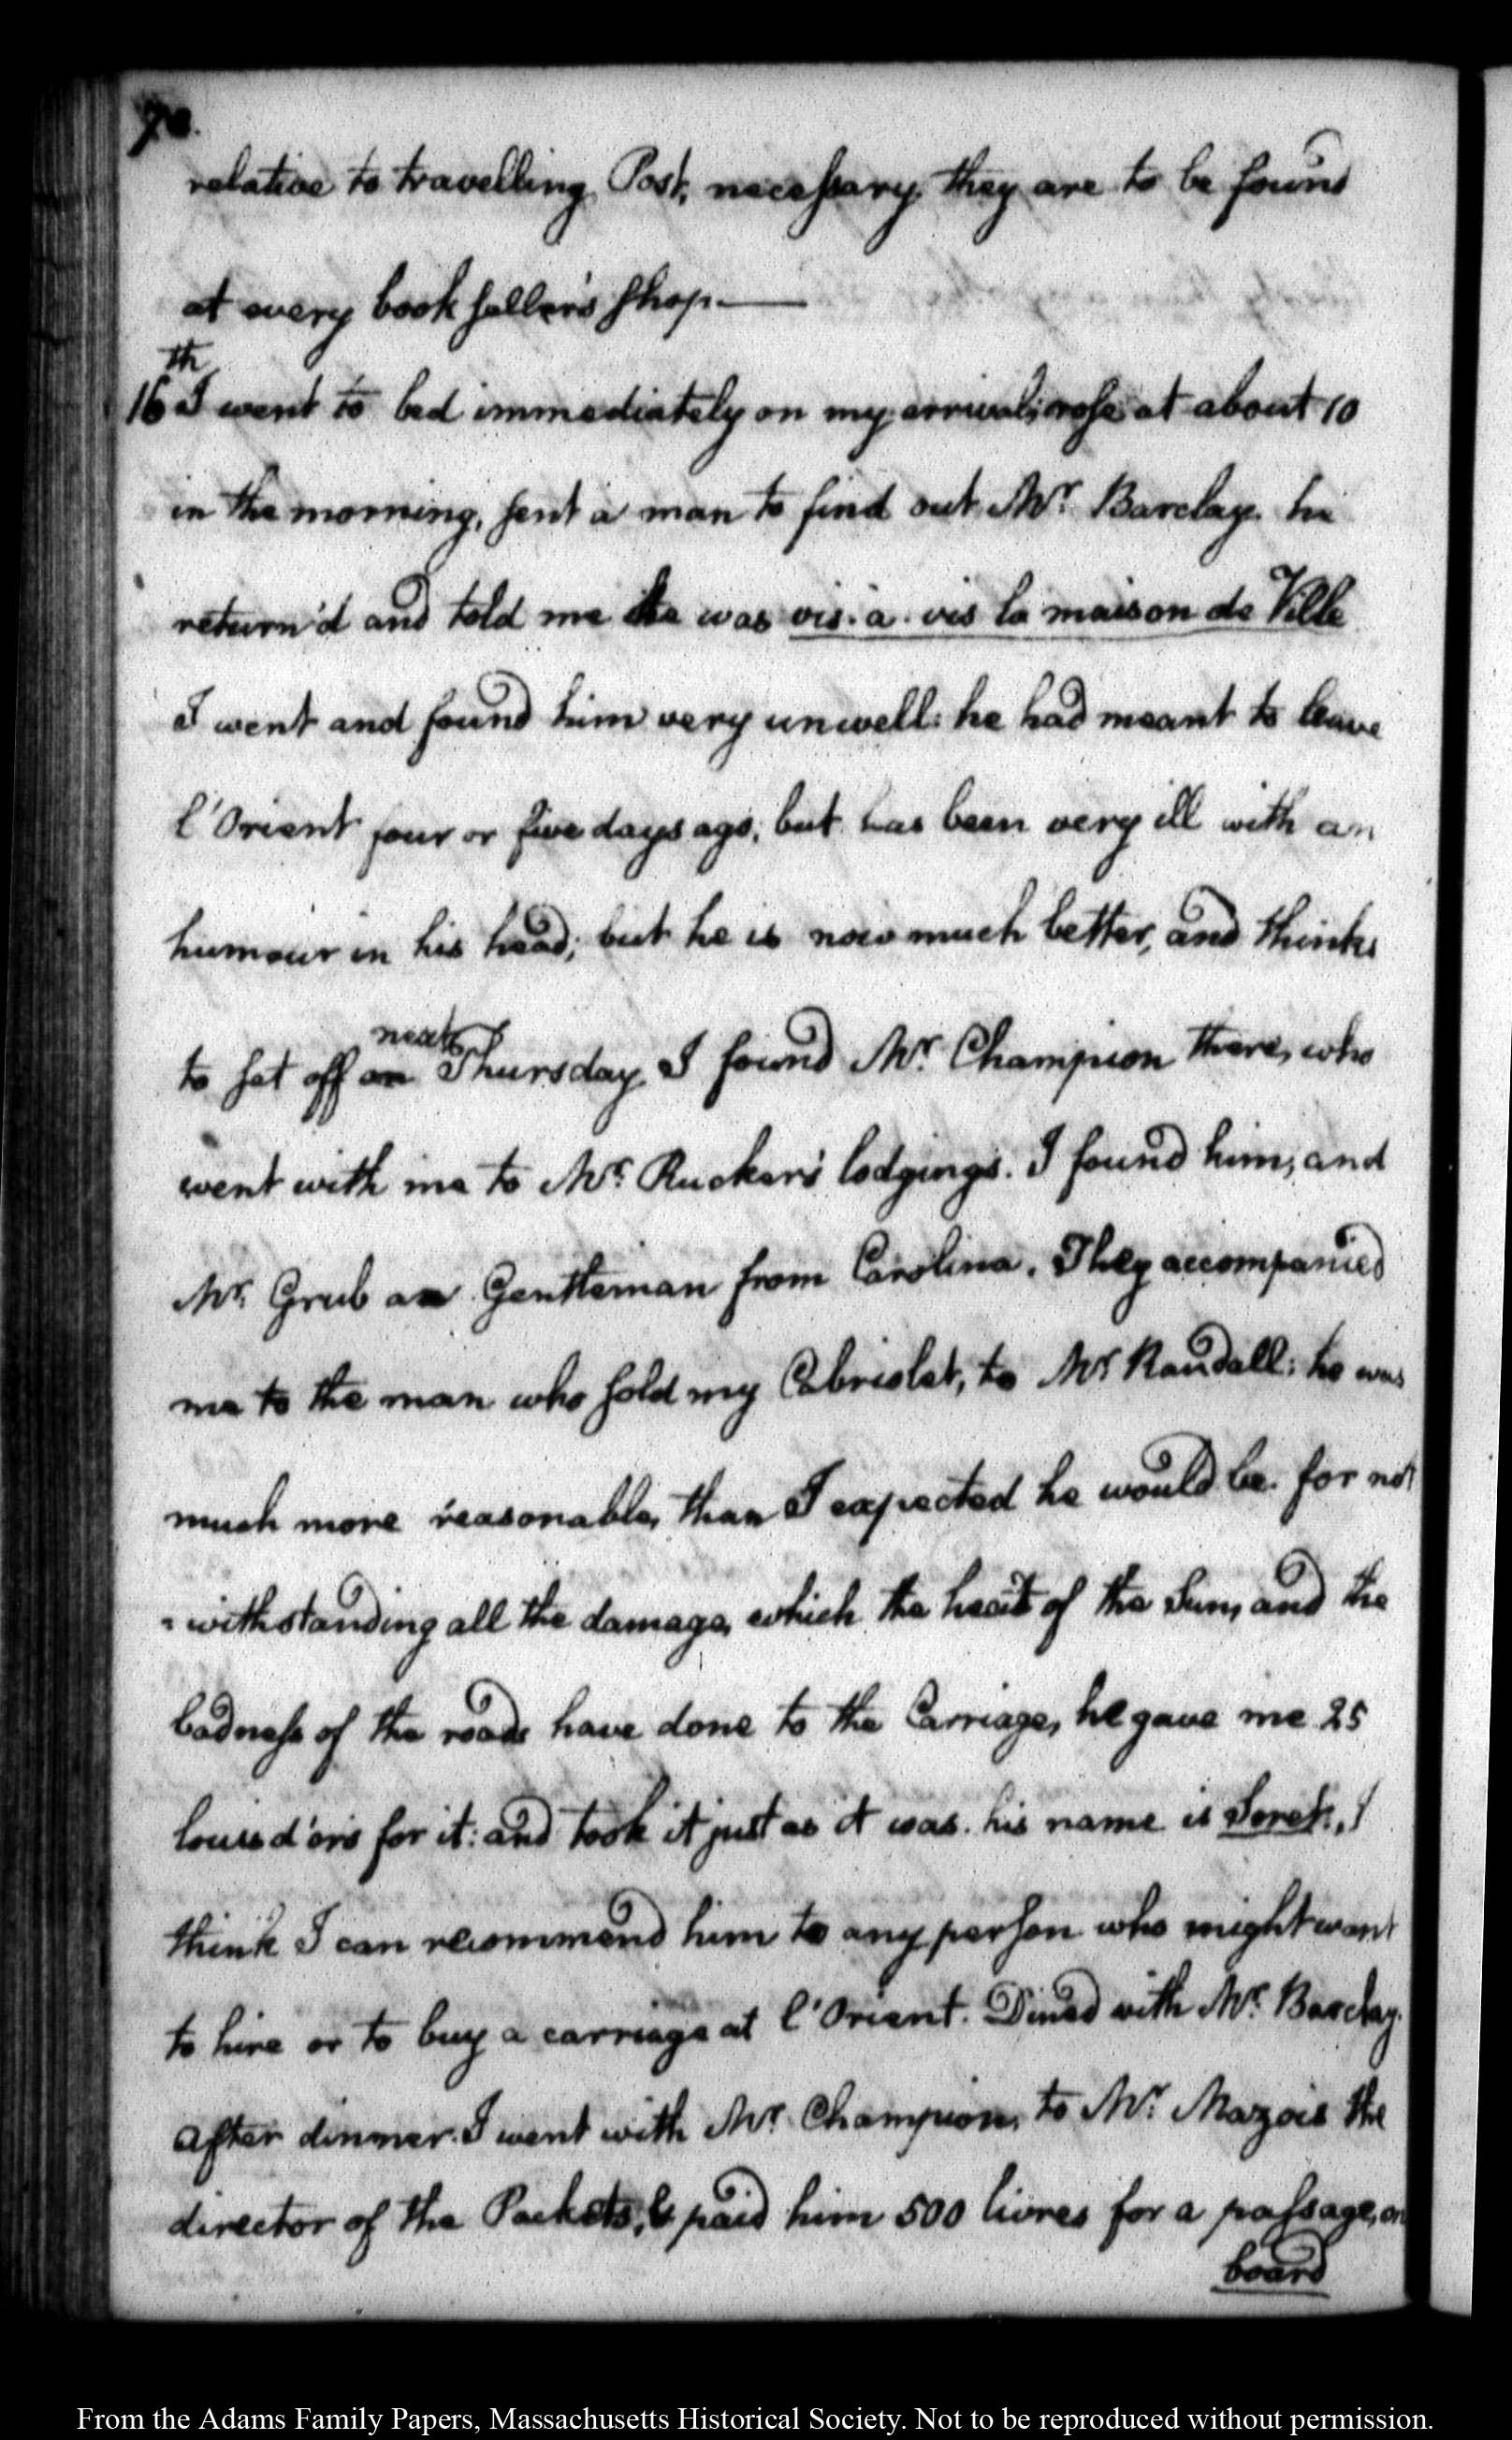 70.
relative to travelling Post, necessary they are to be found
at every book seller's shop.—
th
16 I went to bed immediately on my arrival; rose at about 10
in the morning, sent a man to find out Mr. Barclay. he
return'd and told me he was vis. a. vis la maison de Ville
I went and found him very unwell: he had meant to leave
l'Orient four or five days ago; but has been very ill with an
humour in his head; but he is now much better, and thinks
next
to set off on Thursday. I found Mr. Champion there, who
went with me to Mr. Rucker's lodgings. I found him, and
Mr. Grub a Gentleman from Carolina. They accompanied
me to the man who sold my Cabriolet, to Mr. Randall: he was
much more reasonable, than I expected he would be. for not
-withstanding all the damage, which the heat of the Sun, and the
badness of the roads have done to the Carriage, he gave me 25
louis d'ors for it: and took it just as it was. his name is Soret, I
think I can recommend him to any person who might want
to hire or to buy a carriage at l'Orient. Dined with Mr. Barclay.
after dinner I went with Mr. Champion, to Mr. Mazois the
director of the Packets, & paid him 500 livres for a passage, on
board
From the Adams Family Papers, Massachusetts Historical Society. Not to be reproduced without permission.